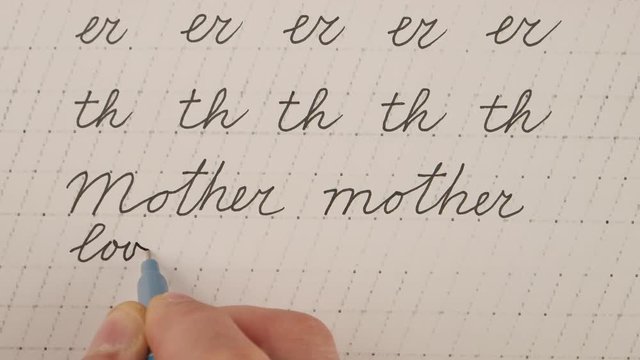 er er er er er
th th th th th
Mother mother
lov